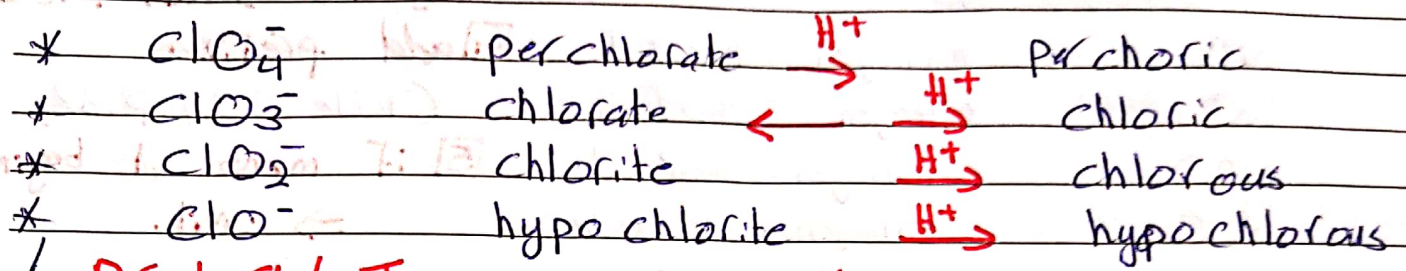 * ClO₄⁻ perchlorate H⁺ → perchoric
* ClO3⁻ chlorate ← H⁺ → chloric
* ClO₂⁻ chlorite H⁺ → chlorous
* ClO⁻ hypochlorite H⁺ → hypochlorous